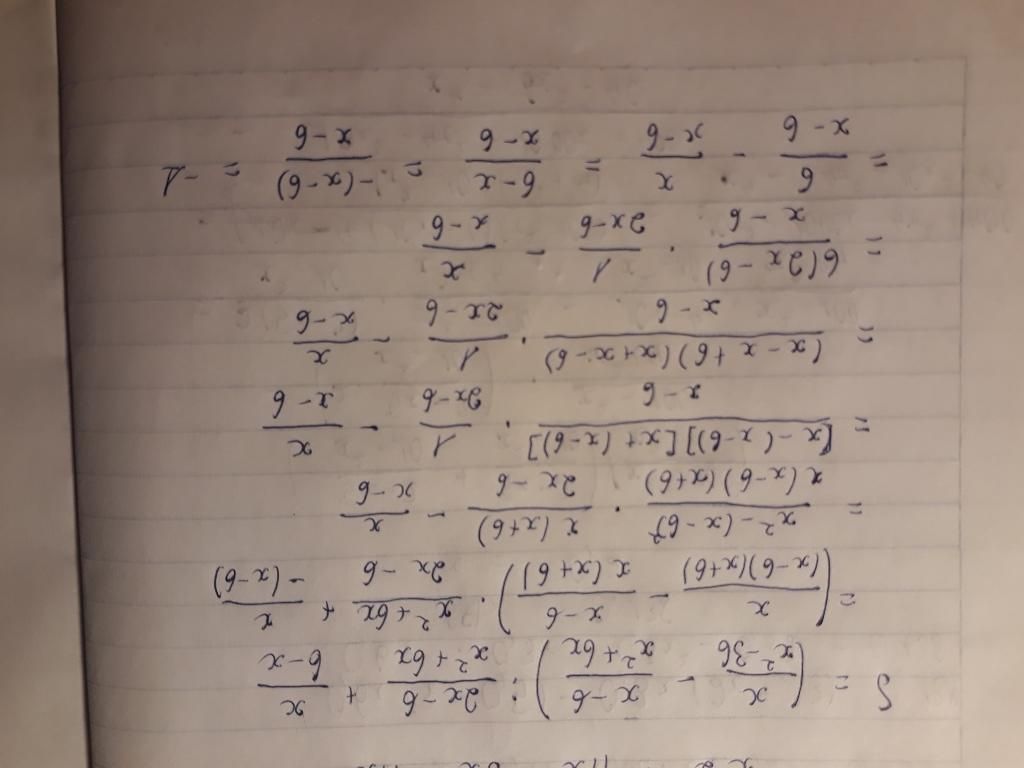 S = (x/(x²-36) - (x-6)/(x²+6x)) : (2x-6)/(x²+6x) + x/(6-x)
= (x/((x-6)(x+6)) - (x-6)/(x(x+6))) · (x²+6x)/(2x-6) + x/(-(x-6))
= (x²-(x-6)²)/(x(x-6)(x+6)) · x(x+6)/(2x-6) - x/(x-6)
= [x-(x-6)][x+(x-6)]/(x-6) · 1/(2x-6) - x/(x-6)
= (x-x+6)(x+x-6)/(x-6) · 1/(2x-6) - x/(x-6)
= 6(2x-6)/(x-6) · 1/(2x-6) - x/(x-6)
= 6/(x-6) - x/(x-6) = (6-x)/(x-6) = -(x-6)/(x-6) = -1